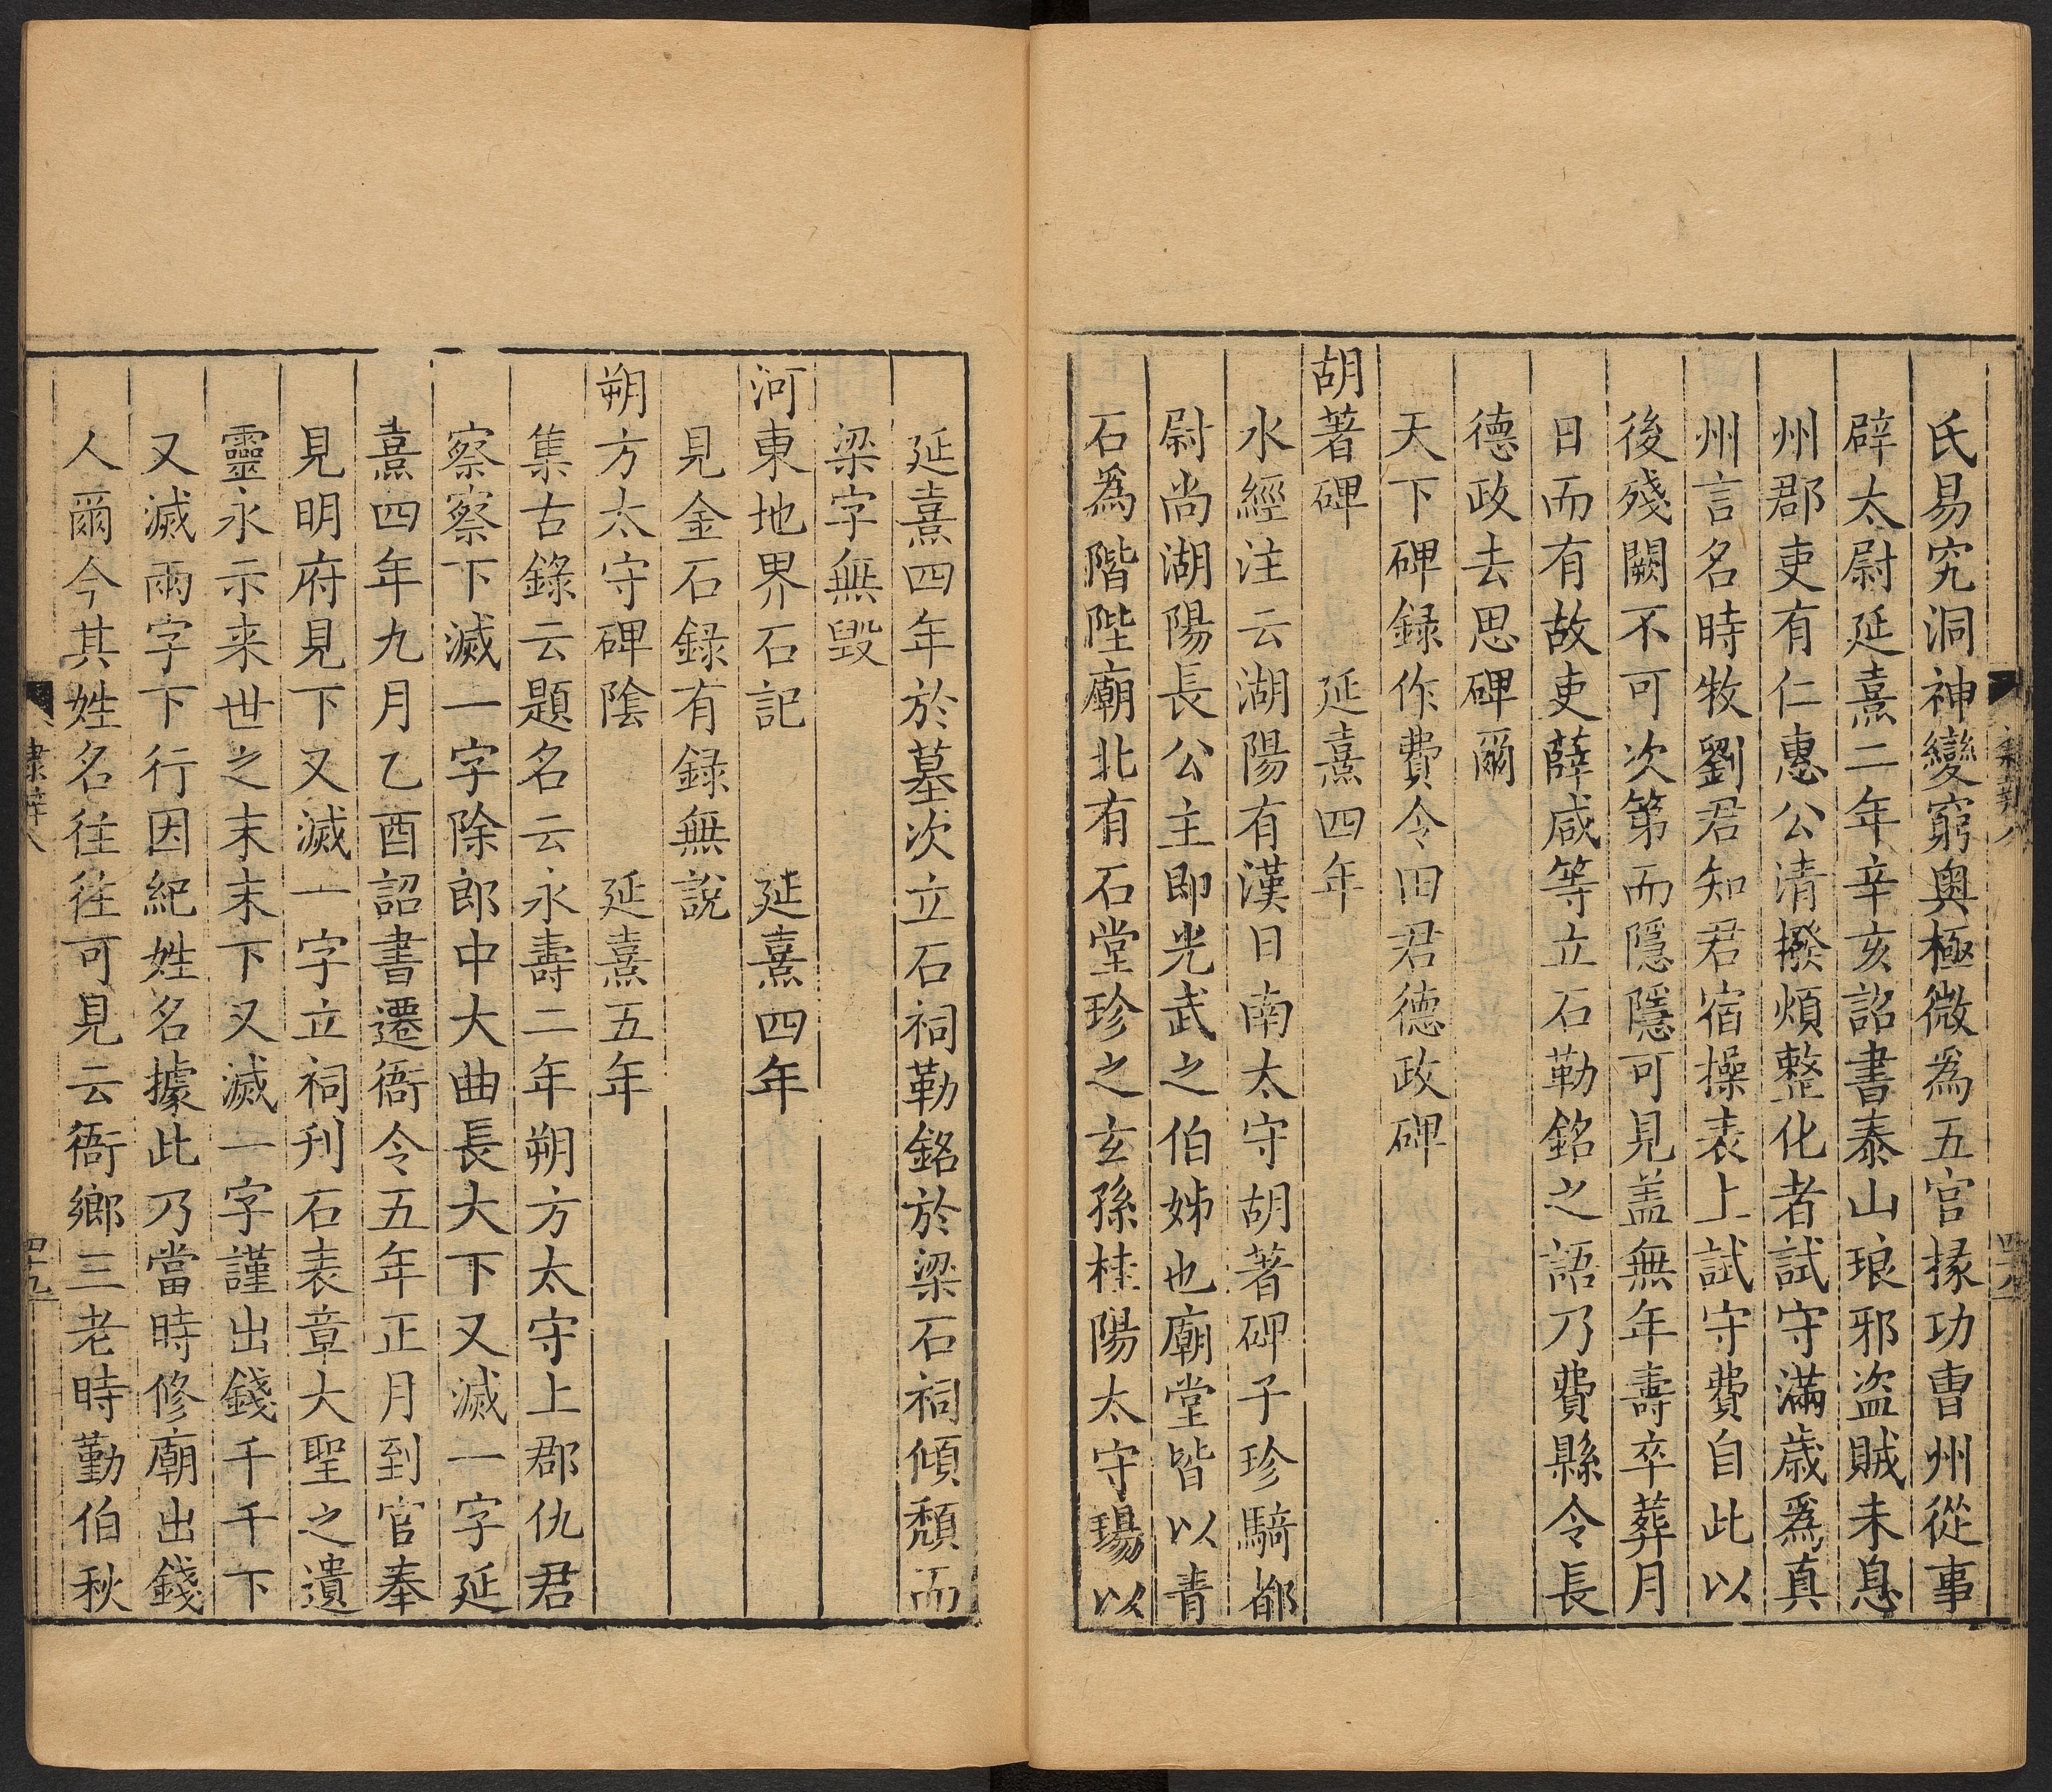 氏易究洞神變窮奧極微為五官掾功曹州從事
辟太尉延熹二年辛亥詔書泰山琅邪盗賊未息
州郡吏有仁惠公清撥煩整化者試守滿歳爲真
州言名時牧劉君知君宿操表上試守費自此以
後殘闕不可次第而隱隱可見盖無年壽卒葬月
日而有故吏薛咸等立石勒銘之語乃費縣令長
德政去思碑爾
天下碑録作費令田君德政碑
胡著碑　延熹四年
水經注云湖陽有漢日南太守胡著碑子珍騎都
尉尚湖陽長公主即光武之伯姊也廟堂皆以青
石爲階陛廟北有石堂珍之玄孫桂陽太守瑒以
延熹四年於墓次立石祠勒銘於梁石祠傾頽而
梁字無毀
河東地界石記　延熹四年
見金石録有録無說
朔方太守碑陰　延熹五年
集古錄云題名云永壽二年朔方太守上郡仇君
察察下滅一字除郎中大曲長大下又滅一字延
熹四年九月乙酉詔書遷衙令五年正月到官奉
見明府見下又滅一字立祠刋石表章大聖之遺
靈永示来世之末末下又滅一字謹出錢千千下
又滅兩字下行因紀姓名據此乃當時修廟出錢
人爾今其姓名徃徃可見云衙鄉三老時勤伯秋
四十五